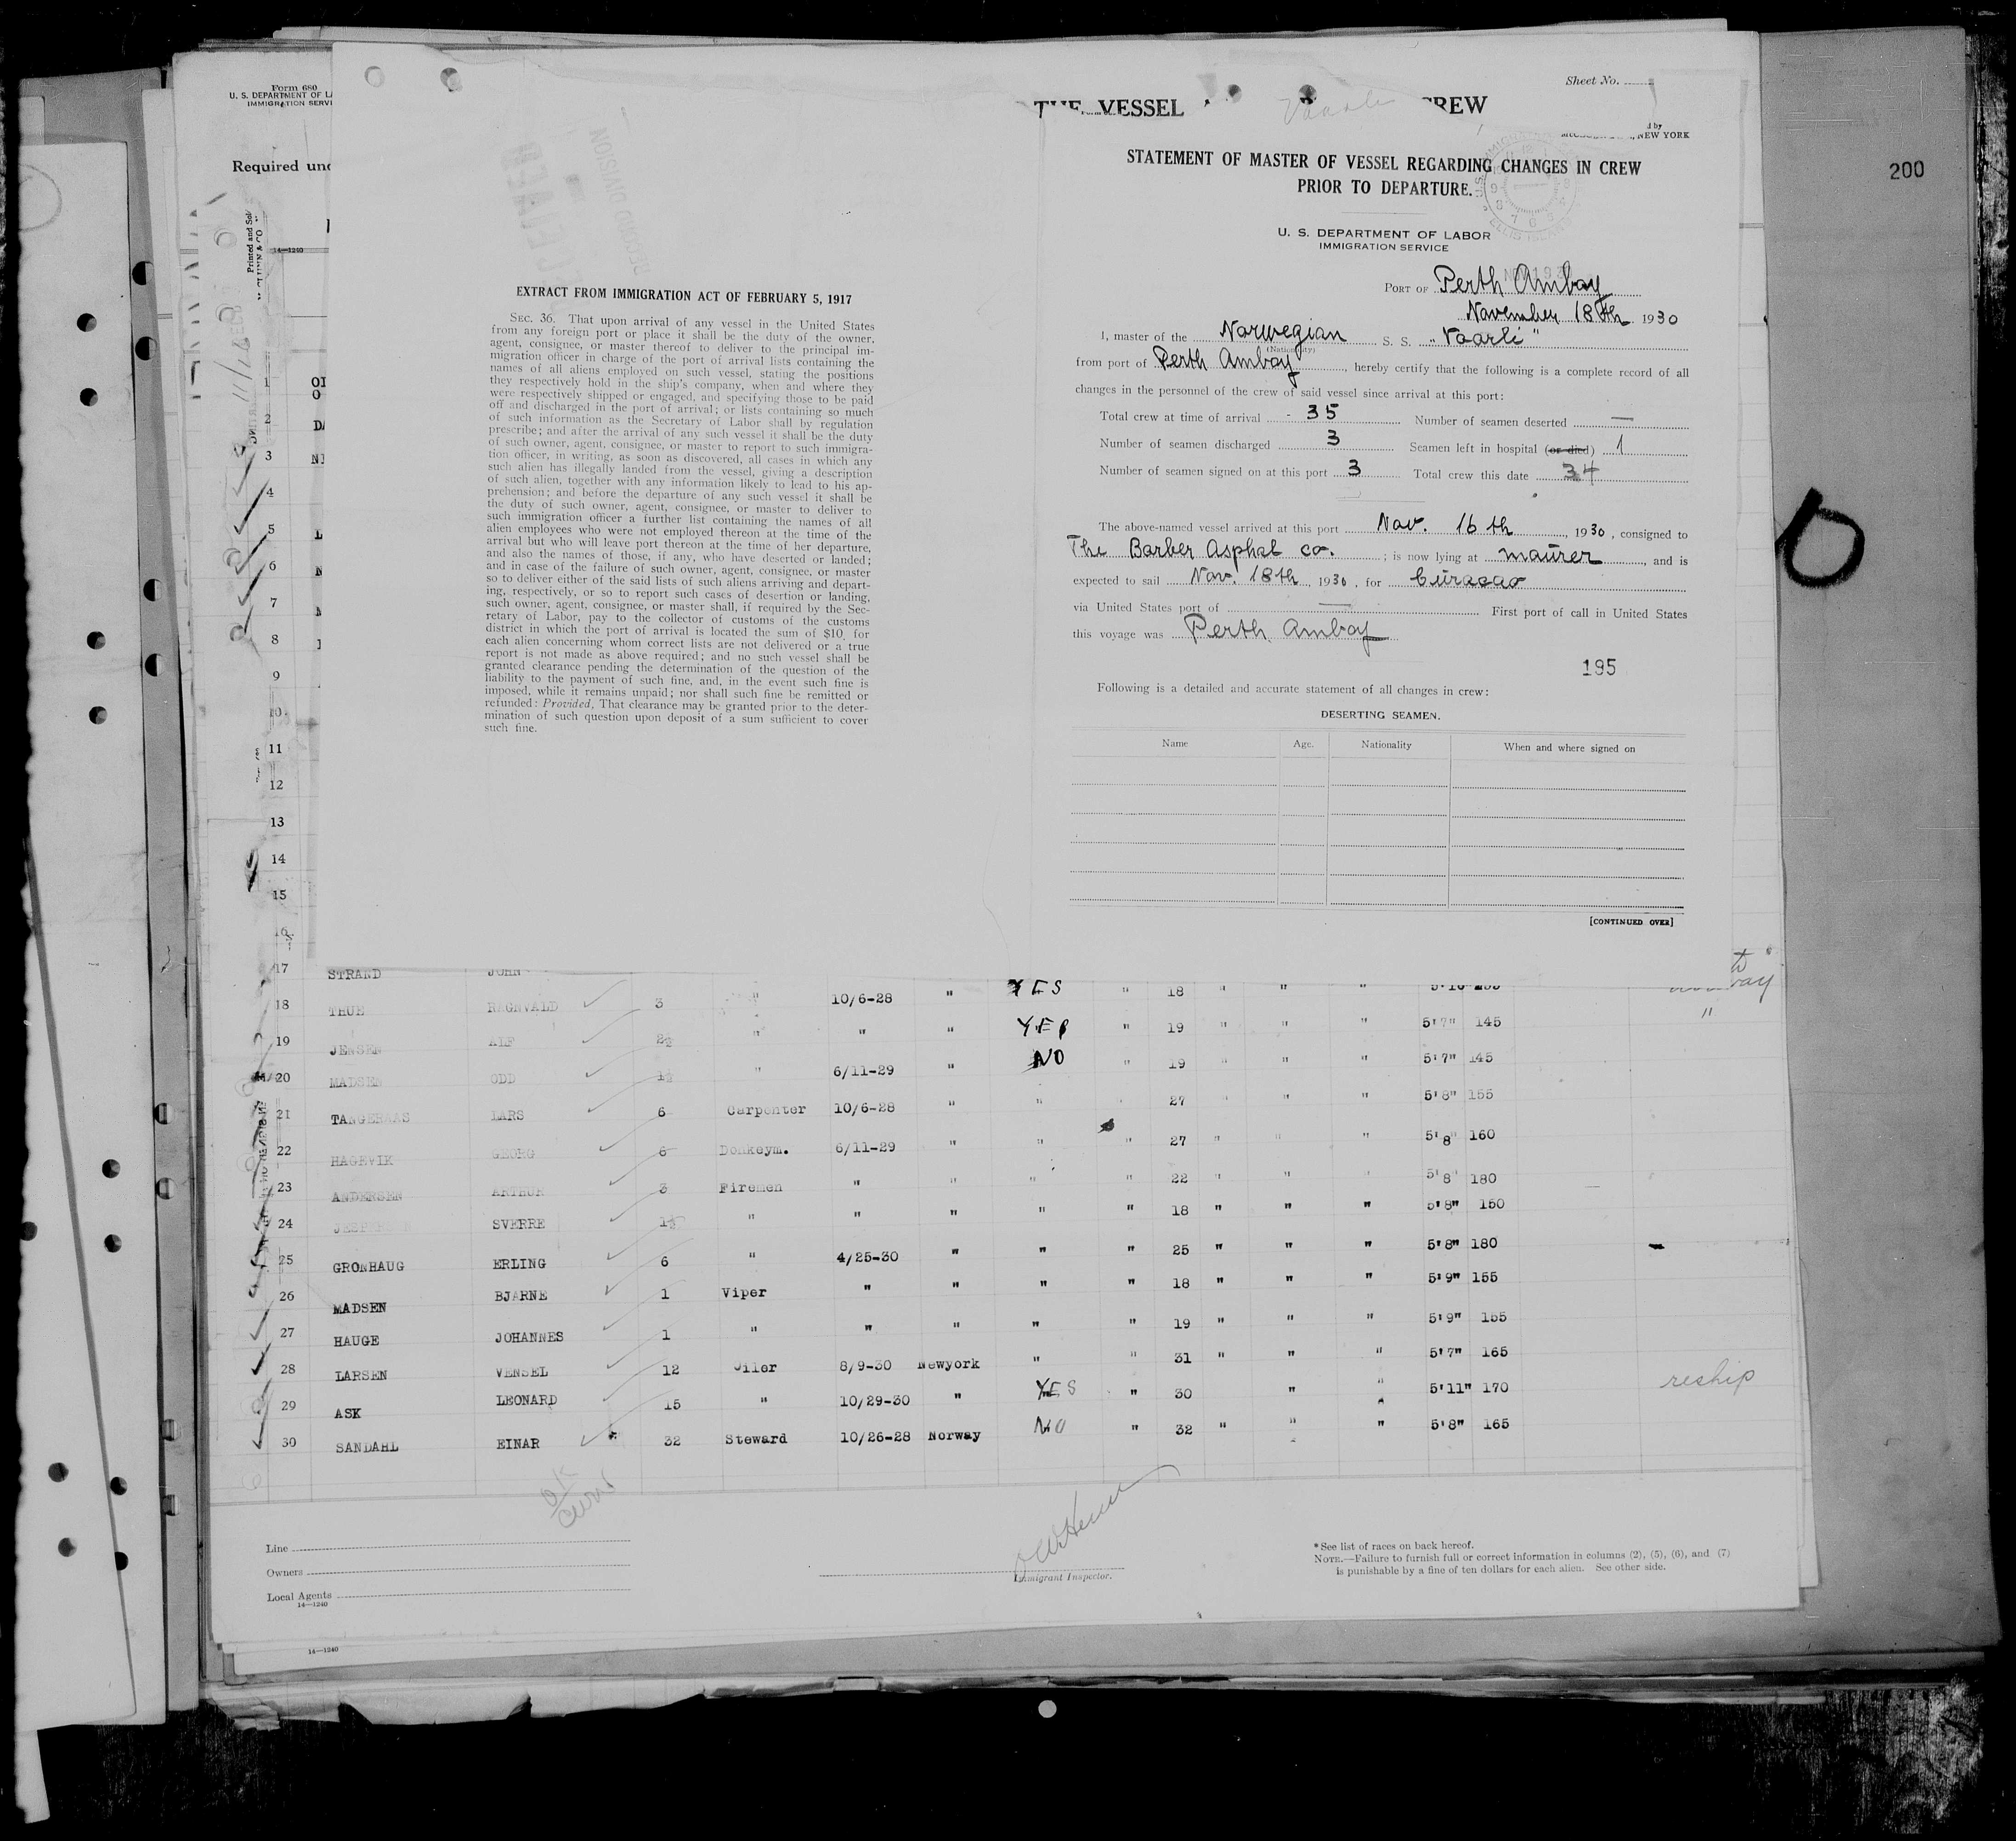 200
Form 680
U. S. DEPARTMENT OF
IMMIGRATION SERV
Required und
14—1240
Sheet No.
THE VESSEL
CREW
Vaarli
, NEW YORK
STATEMENT OF MASTER OF VESSEL REGARDING CHANGES IN CREW
PRIOR TO DEPARTURE.
U. S. DEPARTMENT OF LABOR
IMMIGRATION SERVICE
PORT OF Perth Amboy
November 18th 1930
I, master of the Norwegian S. S. "Vaarli"
(Nationality)
from port of Perth Amboy, hereby certify that the following is a complete record of all
changes in the personnel of the crew of said vessel since arrival at this port:
Total crew at time of arrival - 35 Number of seamen deserted —
Number of seamen discharged 3 Seamen left in hospital (or died) 1
Number of seamen signed on at this port 3 Total crew this date 34
The above-named vessel arrived at this port Nov. 16th, 1930, consigned to
The Barber Asphal co.; is now lying at maurer, and is
expected to sail Nov. 18th, 1930, for Curacao
via United States port of — First port of call in United States
this voyage was Perth Amboy
195
Following is a detailed and accurate statement of all changes in crew:
DESERTING SEAMEN.
Name Age. Nationality When and where signed on
[CONTINUED OVER]
EXTRACT FROM IMMIGRATION ACT OF FEBRUARY 5, 1917
SEC. 36. That upon arrival of any vessel in the United States
from any foreign port or place it shall be the duty of the owner,
agent, consignee, or master thereof to deliver to the principal im-
migration officer in charge of the port of arrival lists containing the
names of all aliens employed on such vessel, stating the positions
they respectively hold in the ship's company, when and where they
were respectively shipped or engaged, and specifying those to be paid
off and discharged in the port of arrival; or lists containing so much
of such information as the Secretary of Labor shall by regulation
prescribe; and after the arrival of any such vessel it shall be the duty
of such owner, agent, consignee, or master to report to such immigra-
tion officer, in writing, as soon as discovered, all cases in which any
such alien has illegally landed from the vessel, giving a description
of such alien, together with any information likely to lead to his ap-
prehension; and before the departure of any such vessel it shall be
the duty of such owner, agent, consignee, or master to deliver to
such immigration officer a further list containing the names of all
alien employees who were not employed thereon at the time of the
arrival but who will leave port thereon at the time of her departure,
and also the names of those, if any, who have deserted or landed;
and in case of the failure of such owner, agent, consignee, or master
so to deliver either of the said lists of such aliens arriving and depart-
ing, respectively, or so to report such cases of desertion or landing,
such owner, agent, consignee, or master shall, if required by the Sec-
retary of Labor, pay to the collector of customs of the customs
district in which the port of arrival is located the sum of $10 for
each alien concerning whom correct lists are not delivered or a true
report is not made as above required; and no such vessel shall be
granted clearance pending the determination of the question of the
liability to the payment of such fine, and, in the event such fine is
imposed, while it remains unpaid; nor shall such fine be remitted or
refunded: Provided, That clearance may be granted prior to the deter-
mination of such question upon deposit of a sum sufficient to cover
such fine.
1
2
3
4
5
6
7
8
9
10
11
12
13
14
15
16
17 STRAND JOHN
18 THUE RAGNVALD 3 " 10/6-28 " YES " 18 " " "
19 JENSEN ALF 2½ " " " YES " 19 " " " 5'7" 145 "
20 MADSEN ODD 1½ " 6/11-29 " NO " 19 " " " 5'7" 145
21 TANGERAAS LARS 6 Carpenter 10/6-28 " " " 27 " " " 5'8" 155
22 HAGEVIK GEORG 6 Donkeym. 6/11-29 " " " 27 " " " 5'8" 160
23 ANDERSEN ARTHUR 3 Firemen " " " " 22 " " " 5'8" 180
24 SVERRE 1½ " " " " " 18 " " " 5'8" 150
25 GRONHAUG ERLING 6 " 4/25-30 " " " 25 " " " 5'8" 180
26 MADSEN BJARNE 1 Viper " " " " 18 " " " 5'9" 155
27 HAUGE JOHANNES 1 " " " " " 19 " " " 5'9" 155
28 LARSEN VENSEL 12 Oiler 8/9-30 Newyork " " 31 " " " 5'7" 165
29 ASK LEONARD 15 " 10/29-30 " YES " 30 " " 5'11" 170 reship
30 SANDAHL EINAR 32 Steward 10/26-28 Norway NO " 32 " " " 5'8" 165
Line
Owners
Local Agents
14—1240
Immigrant Inspector.
* See list of races on back hereof.
NOTE.—Failure to furnish full or correct information in columns (2), (5), (6), and (7)
is punishable by a fine of ten dollars for each alien. See other side.
14—1240